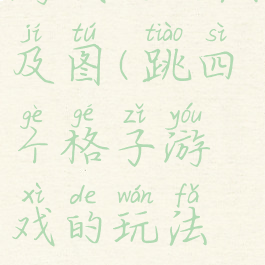 jí tú tiào sì
及图(跳四
gè gé zǐ yóu
个格子游
xì de wán fǎ
戏的玩法